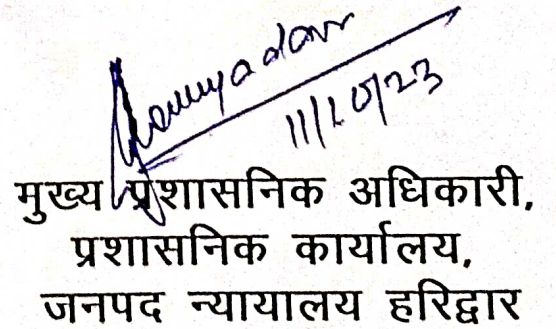 11/10/23
मुख्य प्रशासनिक अधिकारी,
प्रशासनिक कार्यालय,
जनपद न्यायालय हरिद्वार